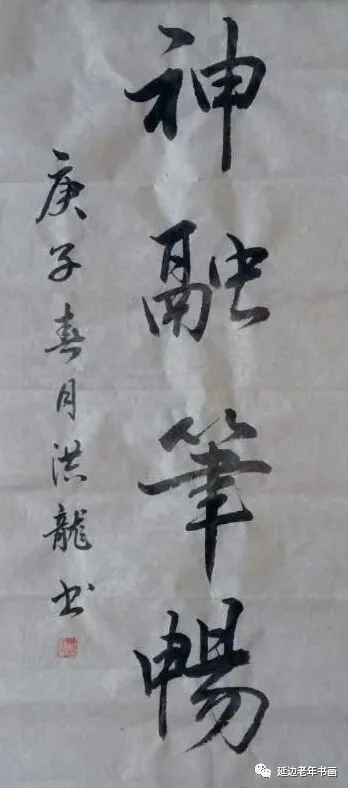 神融筆暢
庚子春月洪龍书
延边老年书画